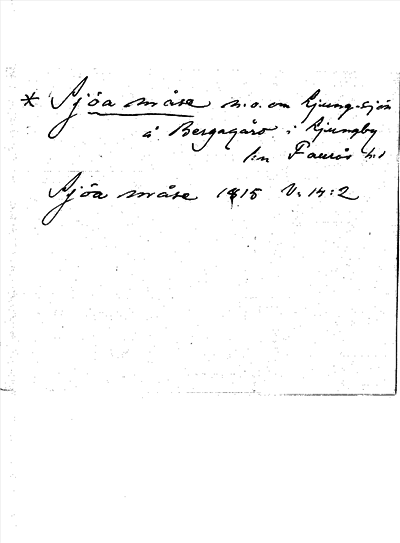 * Sjöa måse n.o. om Ljung-sjön
å Bergagård i Ljungby
sn Faurås hd
Sjöa måse 1815 V: 14:2